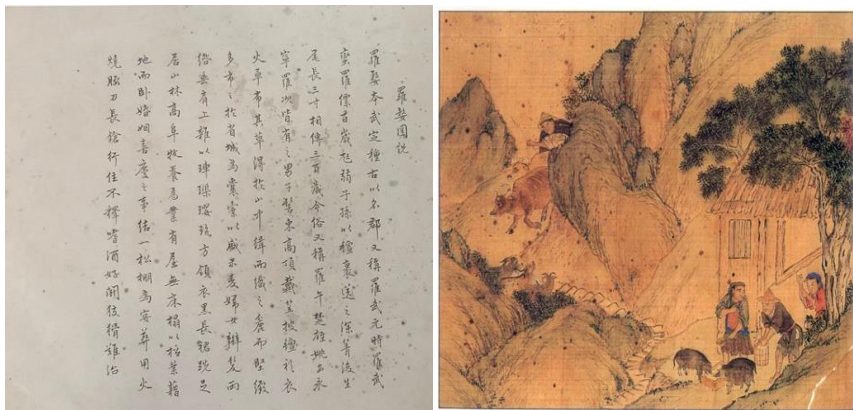 羅婺圖說
羅婺本武定種古以名郡又稱羅武元時羅武
蠻羅僰百歲尪弱子孫以氈裹送之深箐後生
尾長三寸相傳三百歲今俗又稱羅午楚雄姚安永
寧羅次皆有之男子髻束高頂戴笠披氈衣
火草布其草得於山中緝而織之麁而堅緻
多市之於省城為囊橐以盛米麦婦女辮髮兩
綹垂肩上雜以硨磲瓔珞方領衣黑長裙跣足
居山林高阜牧養為業有屋無床榻以松葉藉
地而卧婚姻喜慶之事結一松棚為宴葬用火
燒腰刀長鎗行住不釋嗜酒好鬪狡猾難治